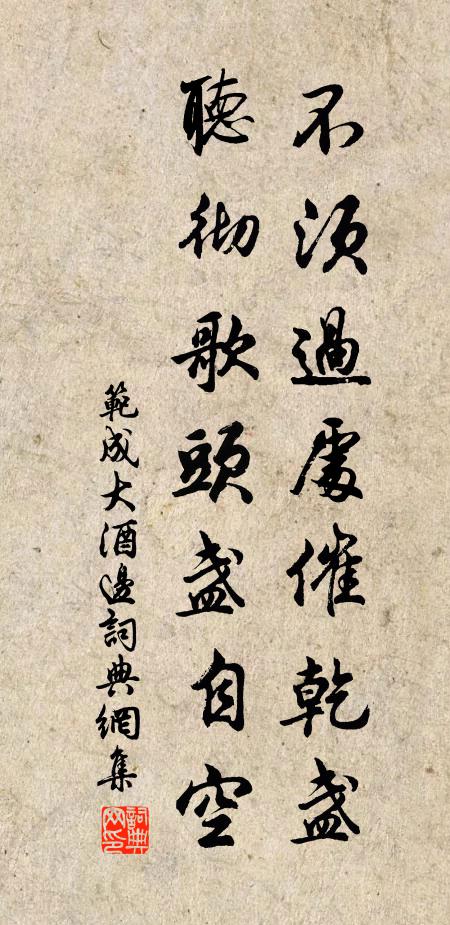 不須過處催乾盞
聽彻歌頭盞自空
範成大酒邊詞典網集
詞典網印